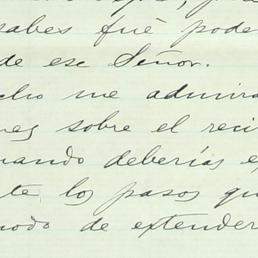 sabes fué pode
de ese Señor.
cho me admira
nes sobre el reci
uando deberías e
te los pasos qu
modo de extender